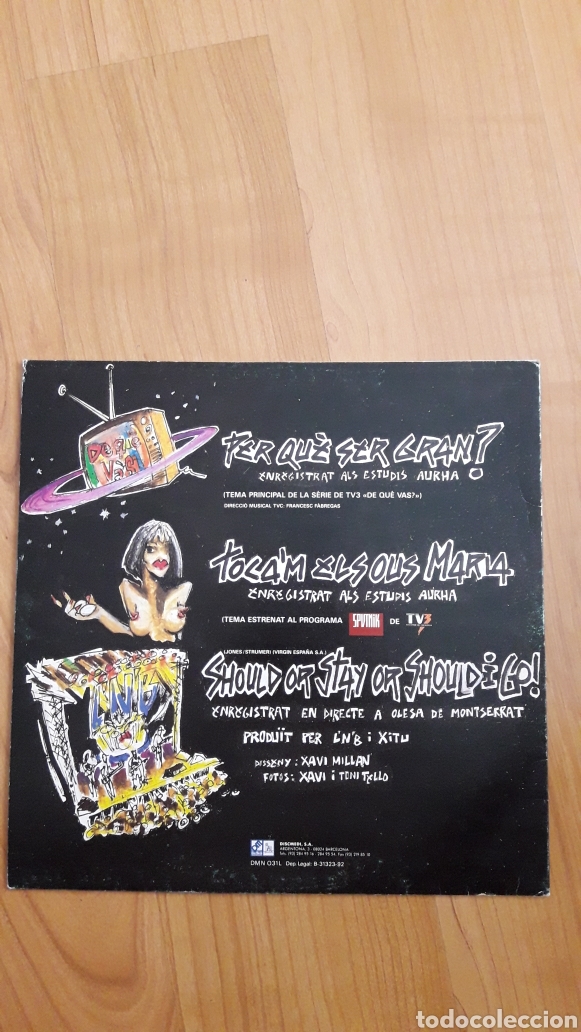 De què
Vas?
PER QUÈ SER GRAN?
ENREGISTRAT ALS ESTUDIS AURHA
(TEMA PRINCIPAL DE LA SÈRIE DE TV3 «DE QUÈ VAS?»)
DIRECCIÓ MUSICAL TVC: FRANCESC FÀBREGAS
TOCA'M ELS OUS MARIA
ENREGISTRAT ALS ESTUDIS AURHA
(TEMA ESTRENAT AL PROGRAMA SPUTNIK DE TV3)
(JONES/STRUMER) (VIRGIN ESPAÑA S.A.)
SHOULD OR STAY OR SHOULD i GO!
ENREGISTRAT EN DIRECTE A OLESA DE MONTSERRAT
PRODUÏT PER L'N'B i XITU
DISSENY: XAVI MILLAN
FOTOS: XAVI i TONI TELLO
L'N'B
DISCMEDI, S.A.
ARDENTONA, 3 - 08024 BARCELONA
Tels. (93) 284 95 16 - 284 95 54. Fax (93) 219 85 10
DMN 031L Dep. Legal: B-31323-92
todocoleccion